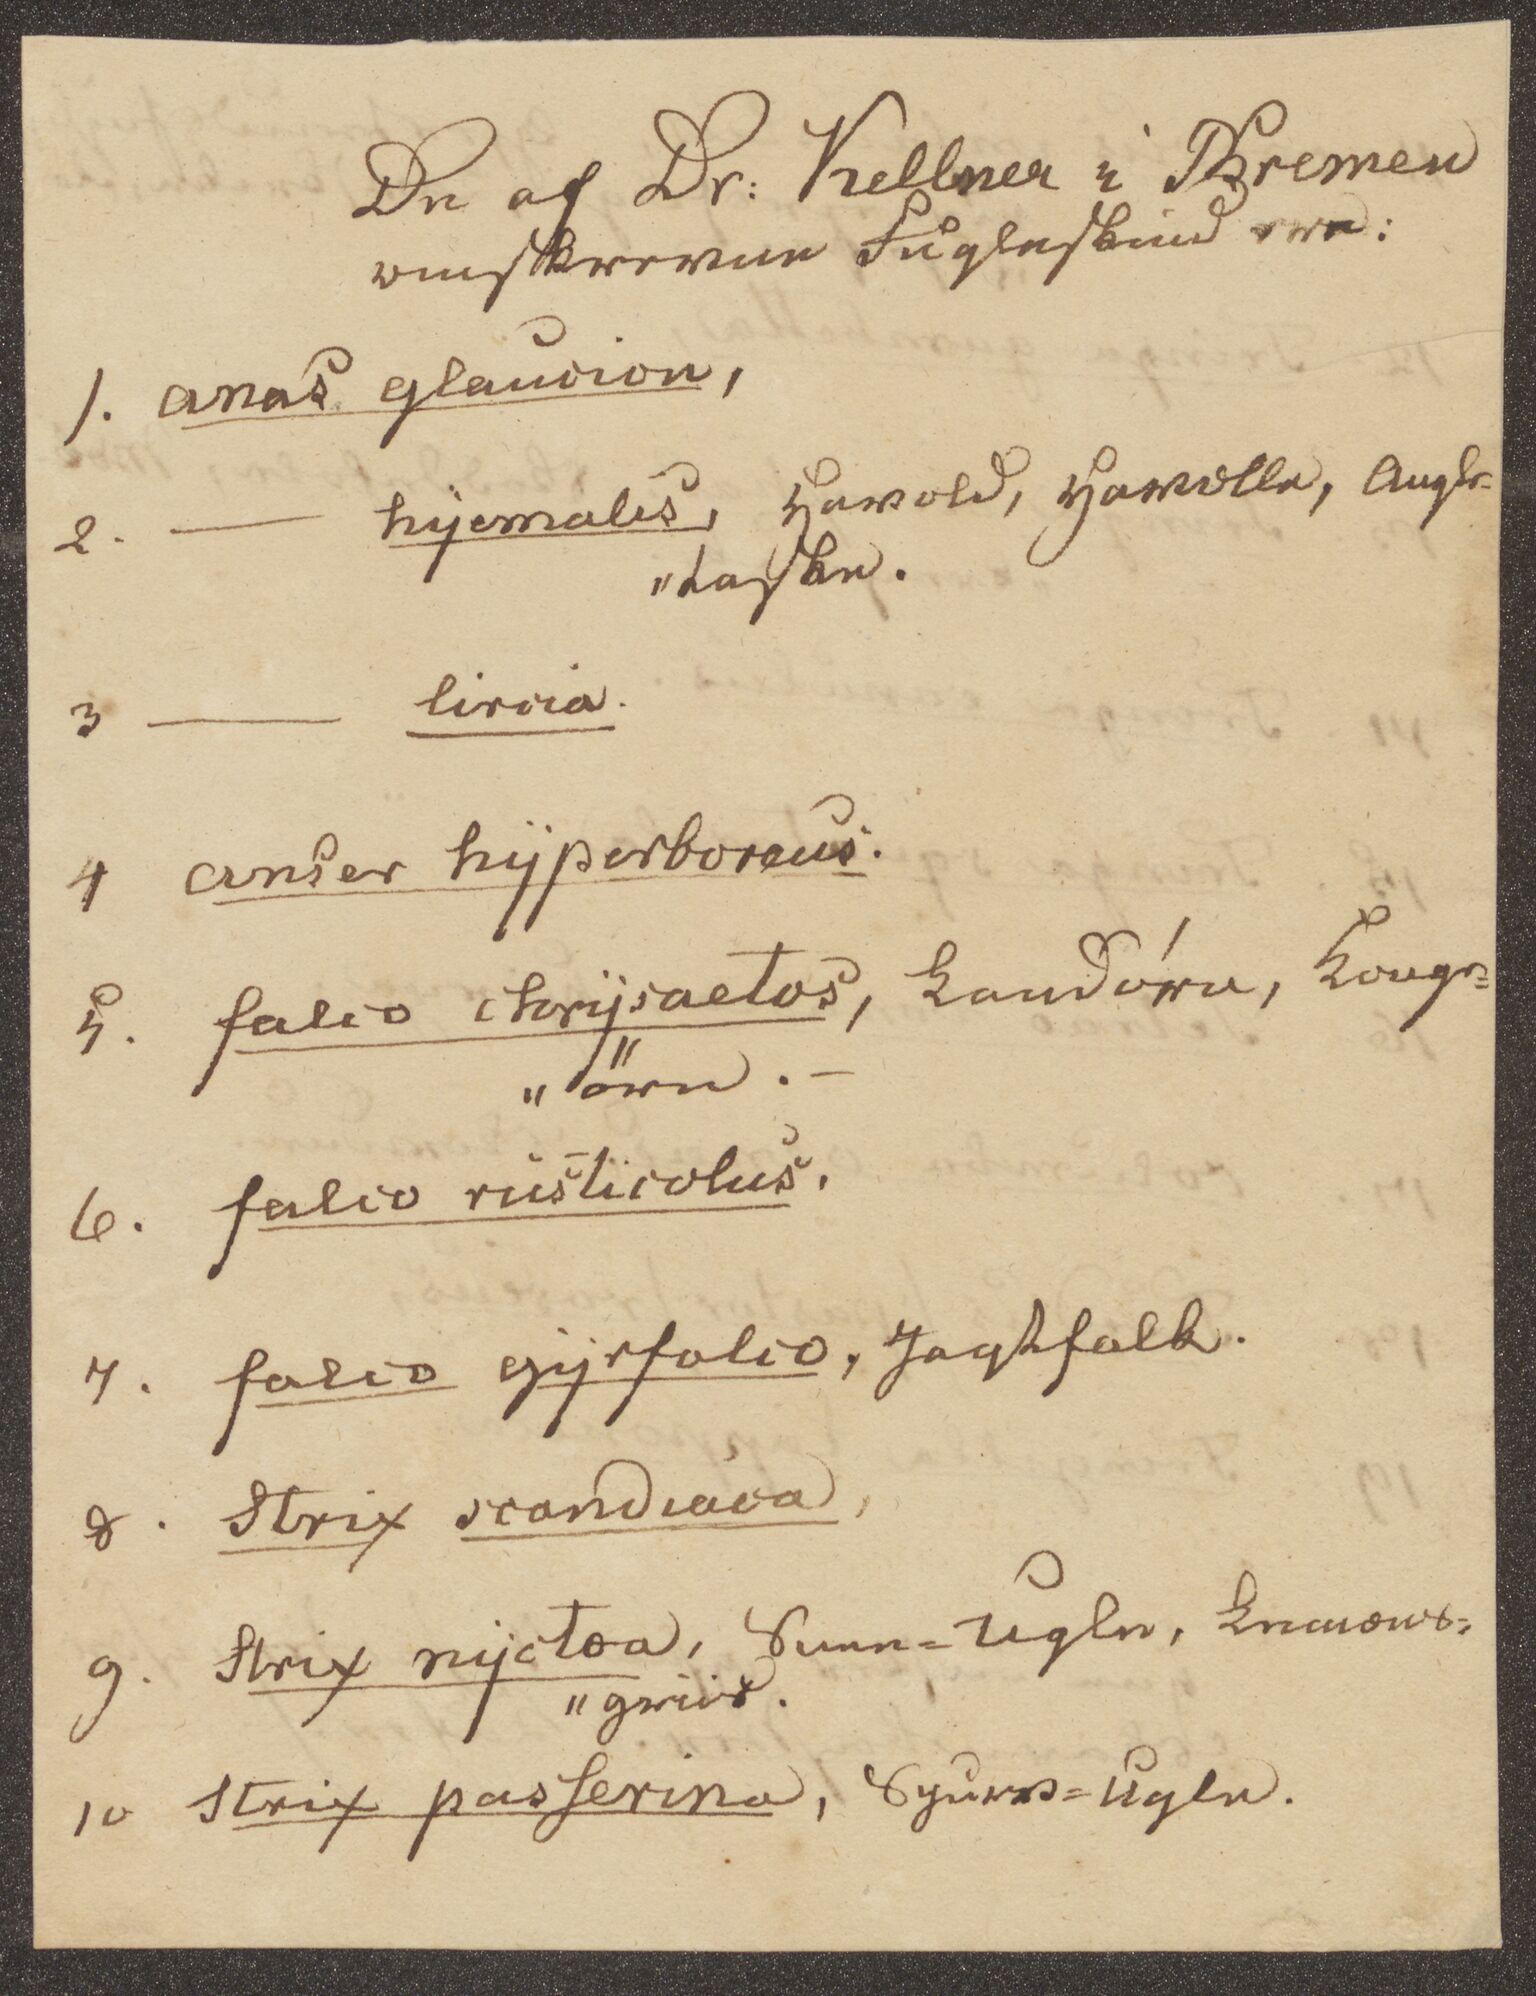 De af Dr: Kellner i Bremen
omskrevne Fugleskind ere:
1. anas glaucion,
2. — hyemalis, Havold, Havelle, Angle-
"taske.
3 — circia.
4 anser hyperboreus.
5. falco chrysaetos, Landörn, Konge-
"örn. —
6. falco rusticolus.
7. falco gyrfalco, Jagtfalk.
8. Strix scandiaca,
9. Strix nyctea, Snee-Ugle,
10 Strix passerina, Spurv-Ugle.